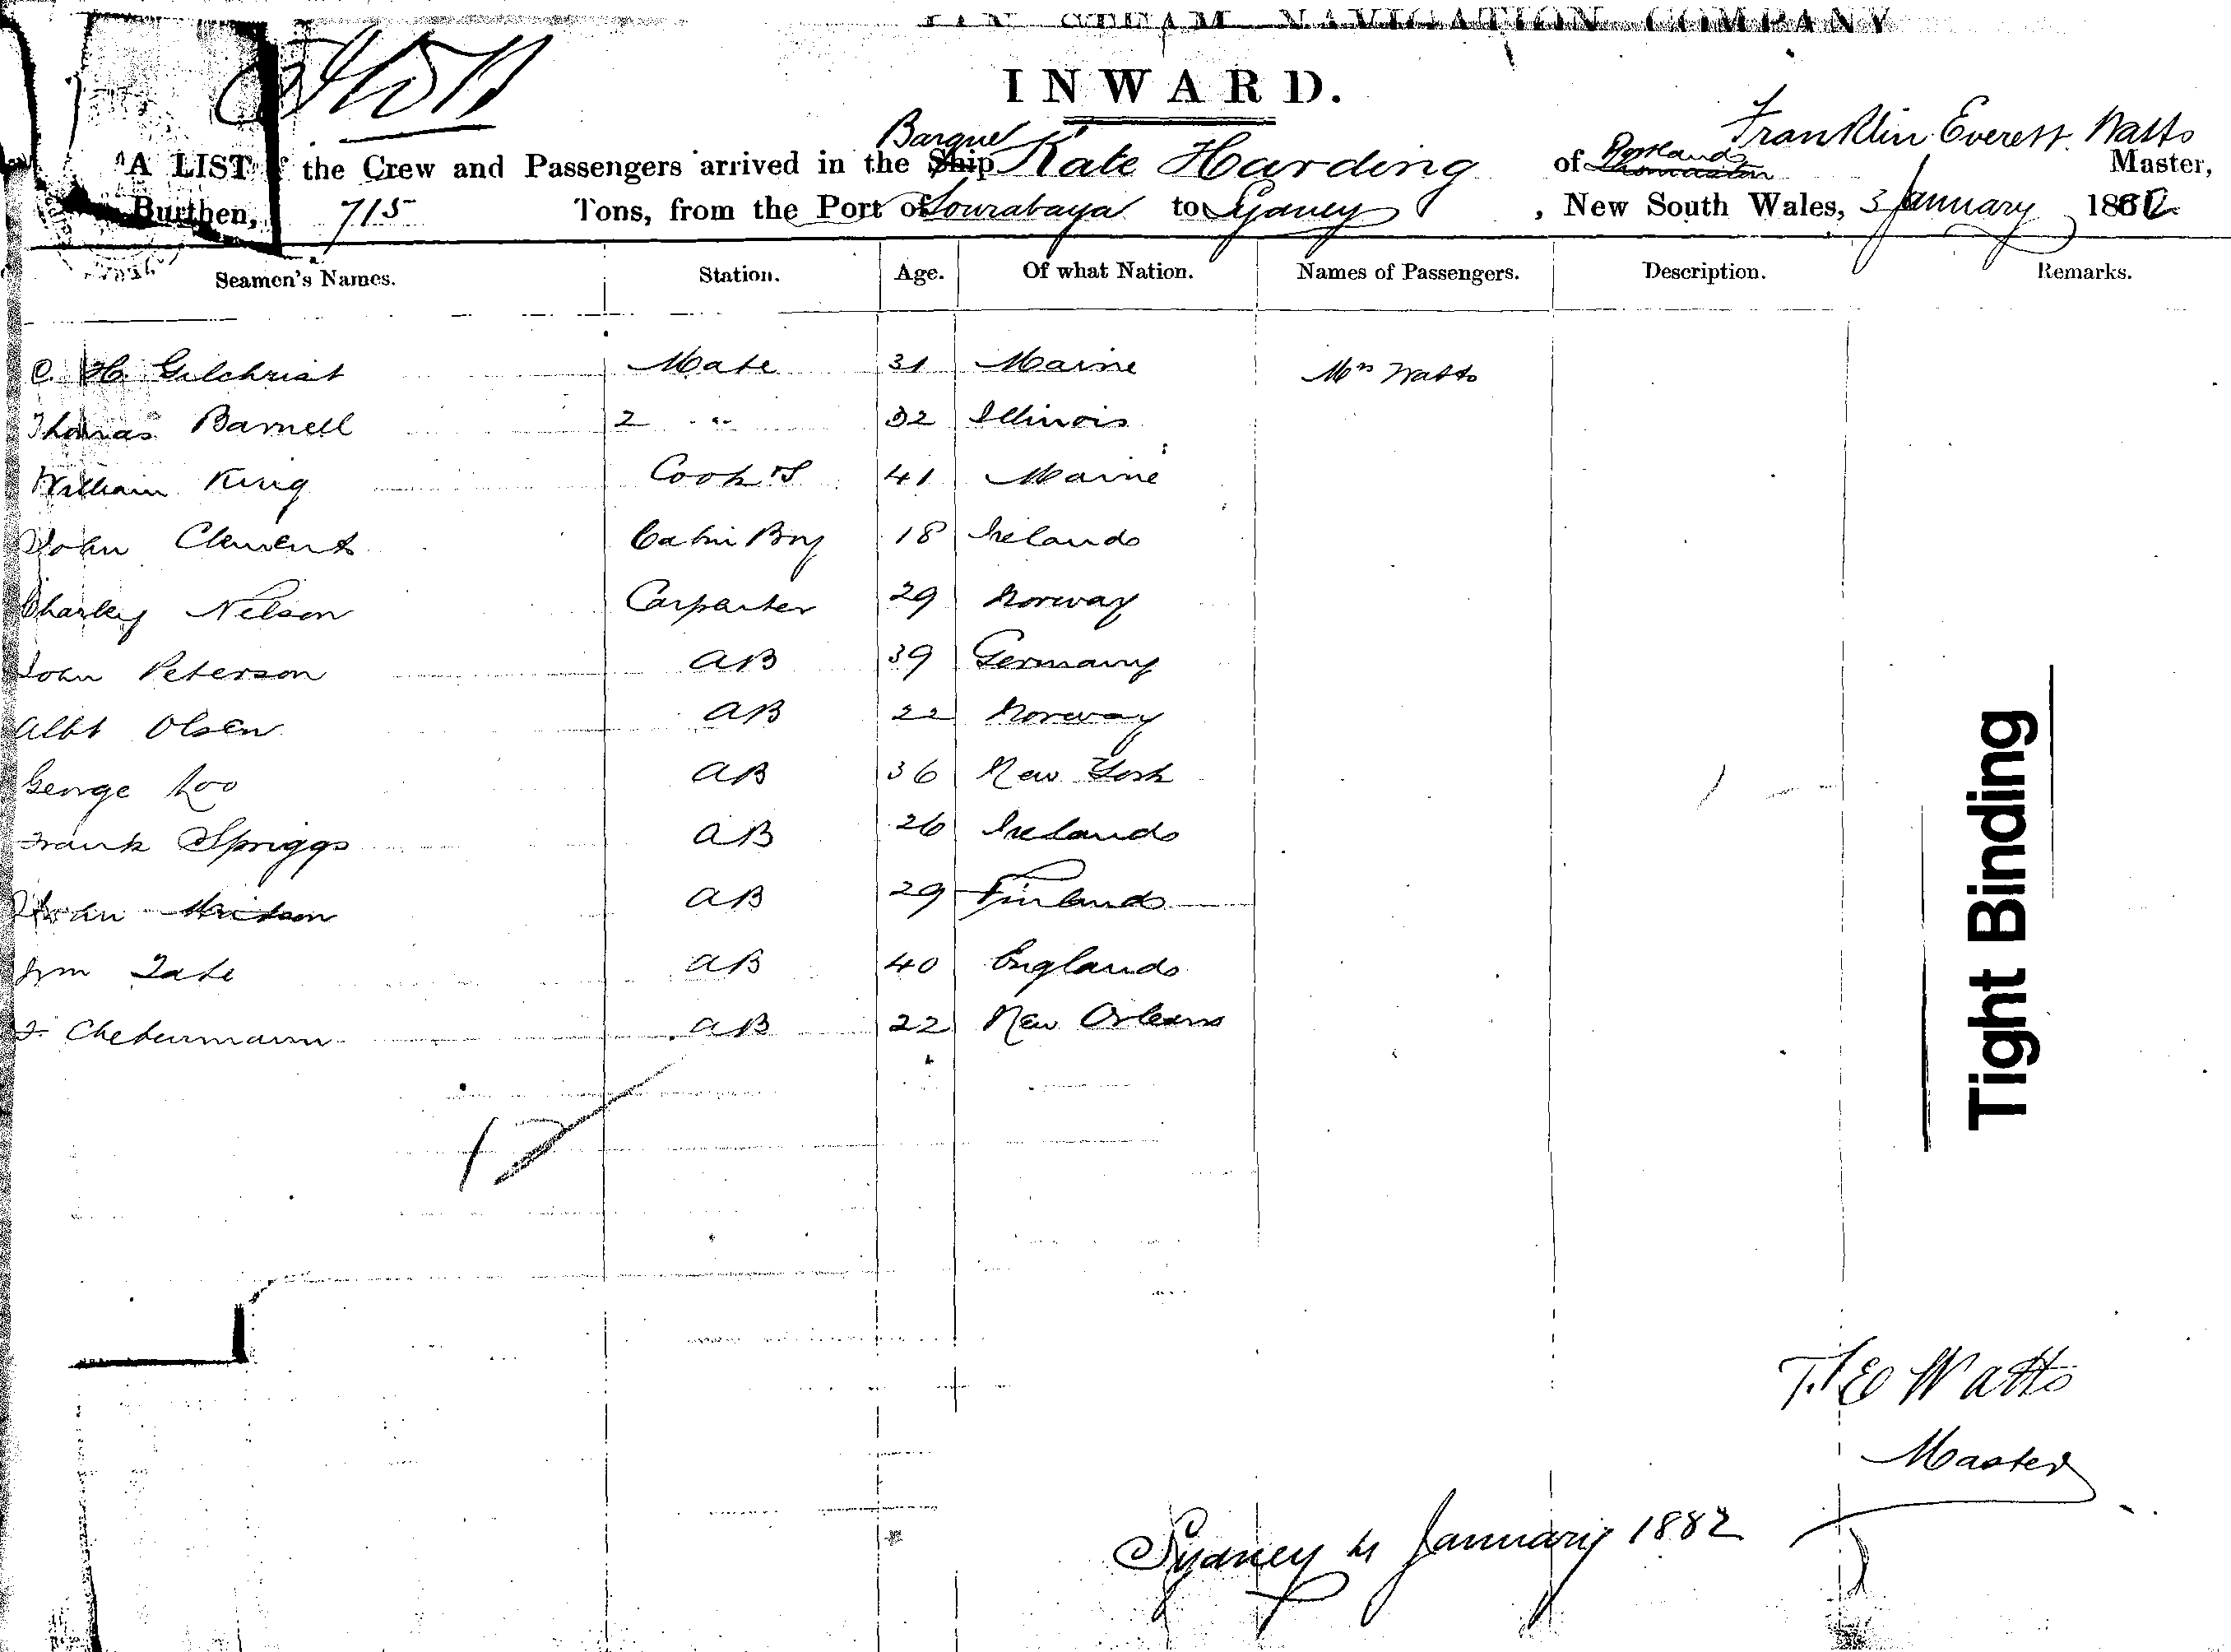 STEAM NAVIGATION COMPANY
INWARD.
Barque Franklin Everett Watts
A LIST of the Crew and Passengers arrived in the Ship Kate Harding of Portland Thomaston Master,
Burthen, 715 Tons, from the Port of Sourabaya to Sydney, New South Wales, 3 January 1882
Seamen's Names. Station. Age. Of what Nation. Names of Passengers. Description. Remarks.
C. H. Gilchrist Mate 31 Maine Mrs Watts
Thomas Barnell 2 " " 32 Illinois
William King Cook & S 41 Maine
John Clements Cabin Boy 18 Ireland
Charley Nelson Carpenter 29 Norway
John Peterson AB 39 Germany
Albt Olsen AB 22 Norway
George Loo AB 36 New York
Frank Spriggs AB 26 Ireland
AB 29 Finland
Wm Tate AB 40 England
AB 22 New Orleans
12
Tight Binding
F. E Watts
Master
Sydney 4 January 1882